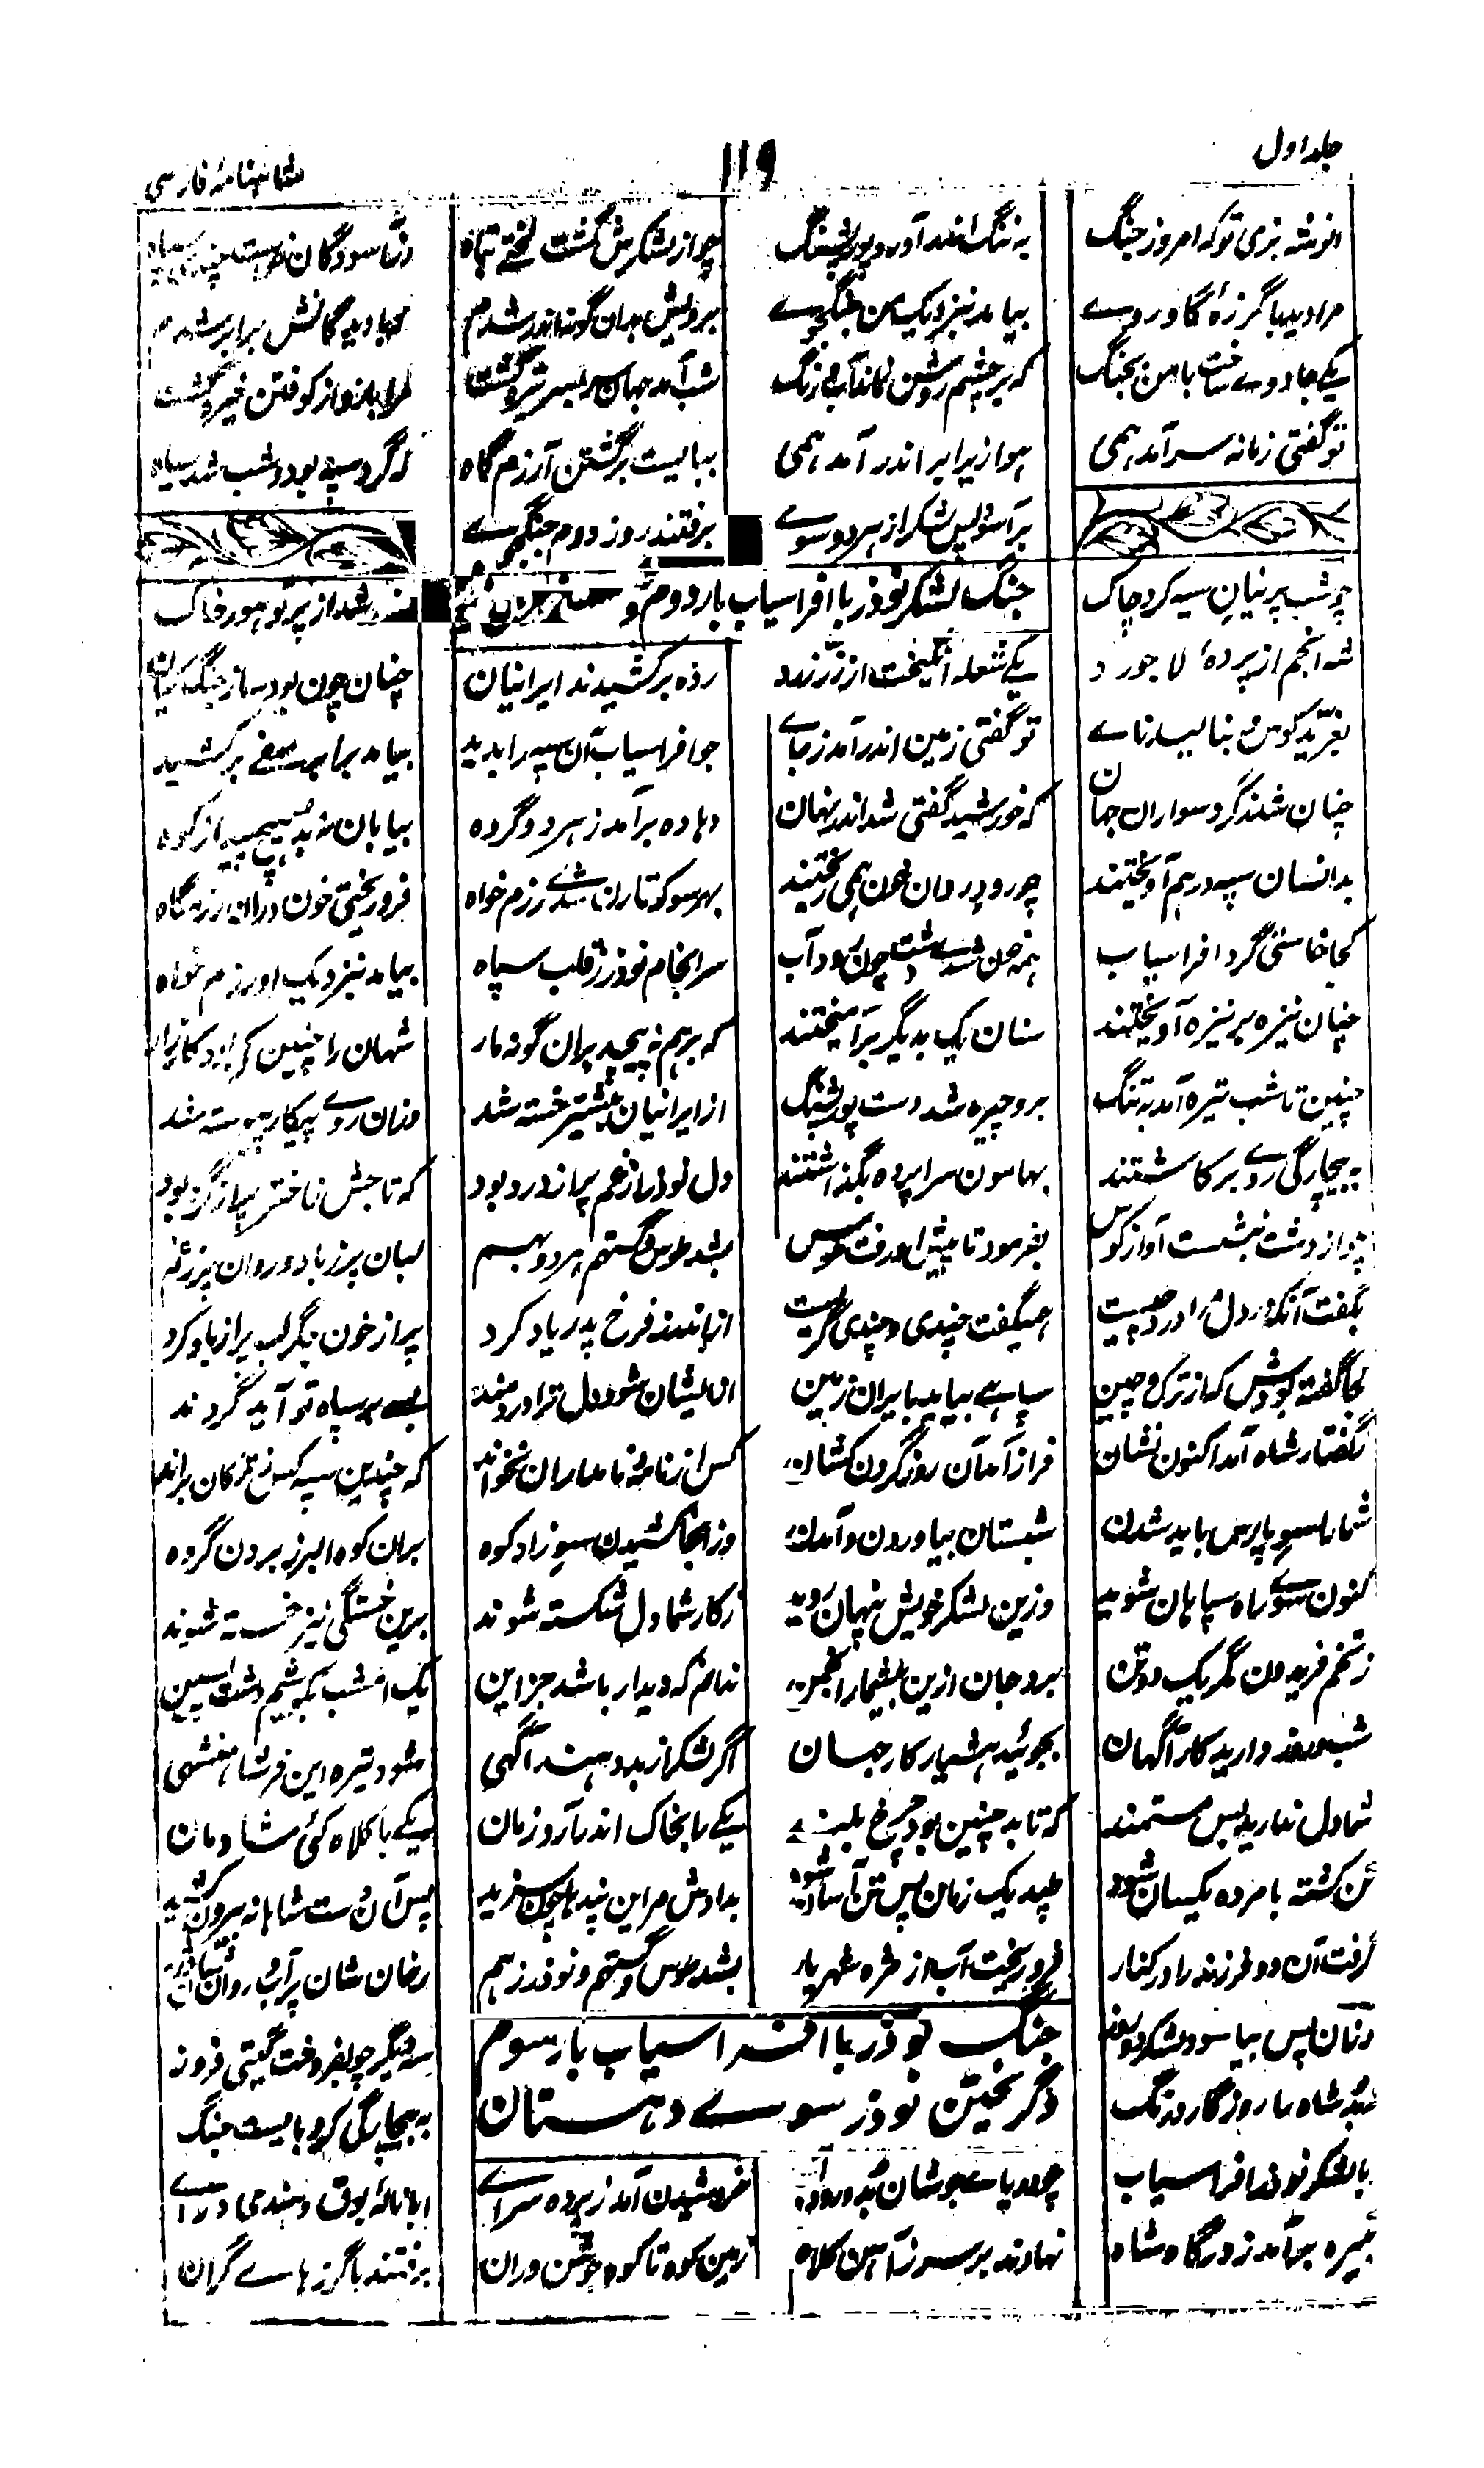 جلد اول ۱۱۹ شاهنامهٔ فارسی
انوشه بزی تو که امروز جنگ به تنگ اندر آورد پور پشنگ چو از لشکرش گشت لختے تباه از آسودگان خواست چندی سپاه
مرا دید با گرزهٔ گاو روے بیامد نزدیک من جنگجوے برویش بدان گونه اندر شدم که با دیدگانش برابر شدم
یکے جادوے ساخت با من بجنگ که بر چشم روشن نماند آب و رنگ شب آمد جهان سربسر تیره گشت مرا بازو از کوفتن خیره گشت
تو گفتی زمانه سر آمد همی هوا زیر ابر اندر آمد همی ببایست برگشتن از رزمگاه که گرد سپه بود و شب شد سیاه
بر آسود پس لشکر از هر دو سوے برفتند روز دوم جنگجوے
جنگ لشکر نوذر با افراسیاب بار دوم
چو شب پرنیان سیه کرد چاک شد از پرتو هور خاک
شه انجم از پردهٔ لاجورد یکے شعله انگیخت از زر زرد رده برکشیدند ایرانیان چنان چون بود ساز جنگ کیان
بغرّید کوس و بنالید ناے تو گفتی زمین اندر آمد ز جاے چو افراسیاب آن سپه را بدید بیامد برابر صفے برکشید
چنان شد ز گرد سواران جهان که خورشید گفتی شد اندر نهان دهاده برآمد ز هر دو گروه بیابان نبد هیچ پیدا ز کوه
بدانسان سپه در هم آویختند چو رود روان خون همی ریختند بهر سو که قارن شدے رزم خواه فرو ریختی خون دران رزمگاه
کجا خاستی گرد افراسیاب همه خون شدے دشت چون رود آب سرانجام نوذر ز قلب سپاه بیامد نزدیک او رزم خواه
چنان نیزه بر نیزه آویختند سنان یک بدیگر برآمیختند که بر هم نه پیچد بران گونه مار شهان را چنین کے بود کارزار
چنین تا شب تیره آمد به تنگ برو چیره شد دست پور پشنگ از ایرانیان بیشتر خسته شد وزان روے پیکار پیوسته شد
به بیچارگی روے برکاشتند بهامون سراپرده بگذاشتند دل نوذر از غم پر از درد بود که تاجش ز اختر پر از گرد بود
چو از دشت بنشست آواز کوس بفرمود تا پیش او رفت طوس بشد طوس و گستهم هر دو بهم لبان پر ز باد و روان پر ز غم
بگفت آنکه در دل را درد چیست همیگفت چندی و چندی گریست از اندرز فرخ پدر یاد کرد پر از خون جگر لب پر از باد کرد
کجا گفته بودش که از ترک و چین سپاهے بیاید بایران زمین از ایشان شود دل ترا دردمند بسے بر سپاه تو آید گزند
ز گفتار شاه آمد اکنون نشان فراز آمد آن روز گردن کشان کس از نامهٔ نامداران نخواند که چندین سپه کس ز ترکان براند
شما را سوے پارس باید شدن شبستان بیاوردن و آمدن وز آنجا کشیدن سوے زاد کوه بران کوه البرز بردن گروه
کنون سوے راه سپاهان شوید وزین لشکر خویش پنهان روید ز کار شما دل شکسته شوند برین خستگی نیز خسته شوند
ز تخم فریدون مگر یک دو تن برد جان ازین بیشمار انجمن ندانم که دیدار باشد جز این یک امشب بکوشیم دست پسین
شب و روز دارید کارآگهان بجوئید هشیار کار جهان اگر لشکر از بد دهند آگهی شود تیره این فر شاهنشهی
شما دل ندارید بس مستمند که تا بد چنین بود چرخ بلند یکے را بخاک اندر آرد زمان یکے با کلاه کئی شادمان
تن کشته با مرده یکسان شود طپد یک زمان پس تن آسان شود بدادش مر این پندها چون سزید پس آن دست شاهانه بیرون کشید
گرفت آن دو فرزند را در کنار فرو ریخت آب از مژه شهریار بشد طوس و گستهم و نوذر بهم رخان شان پر آب و روان
جنگ نوذر با افراسیاب بار سوم
و گریختن نوذر سوے دهستان
ازان پس بیاسود لشکر دو روز سه دیگر چو بفروخت گیتی فروز
نبد شاه را روزگار درنگ به بیچارگی کرد بایست جنگ
با لشکر نوذر افراسیاب چو دریاے جوشان بد و رود آب خروشیدن آمد ز پرده سراے ابا نالهٔ بوق و هندی دراے
تبیره برآمد ز درگاه شاه نهادند بر سر ز آهن کلاه زمین کوه تا کوه جوشن وران برفتند با گرزهاے گران